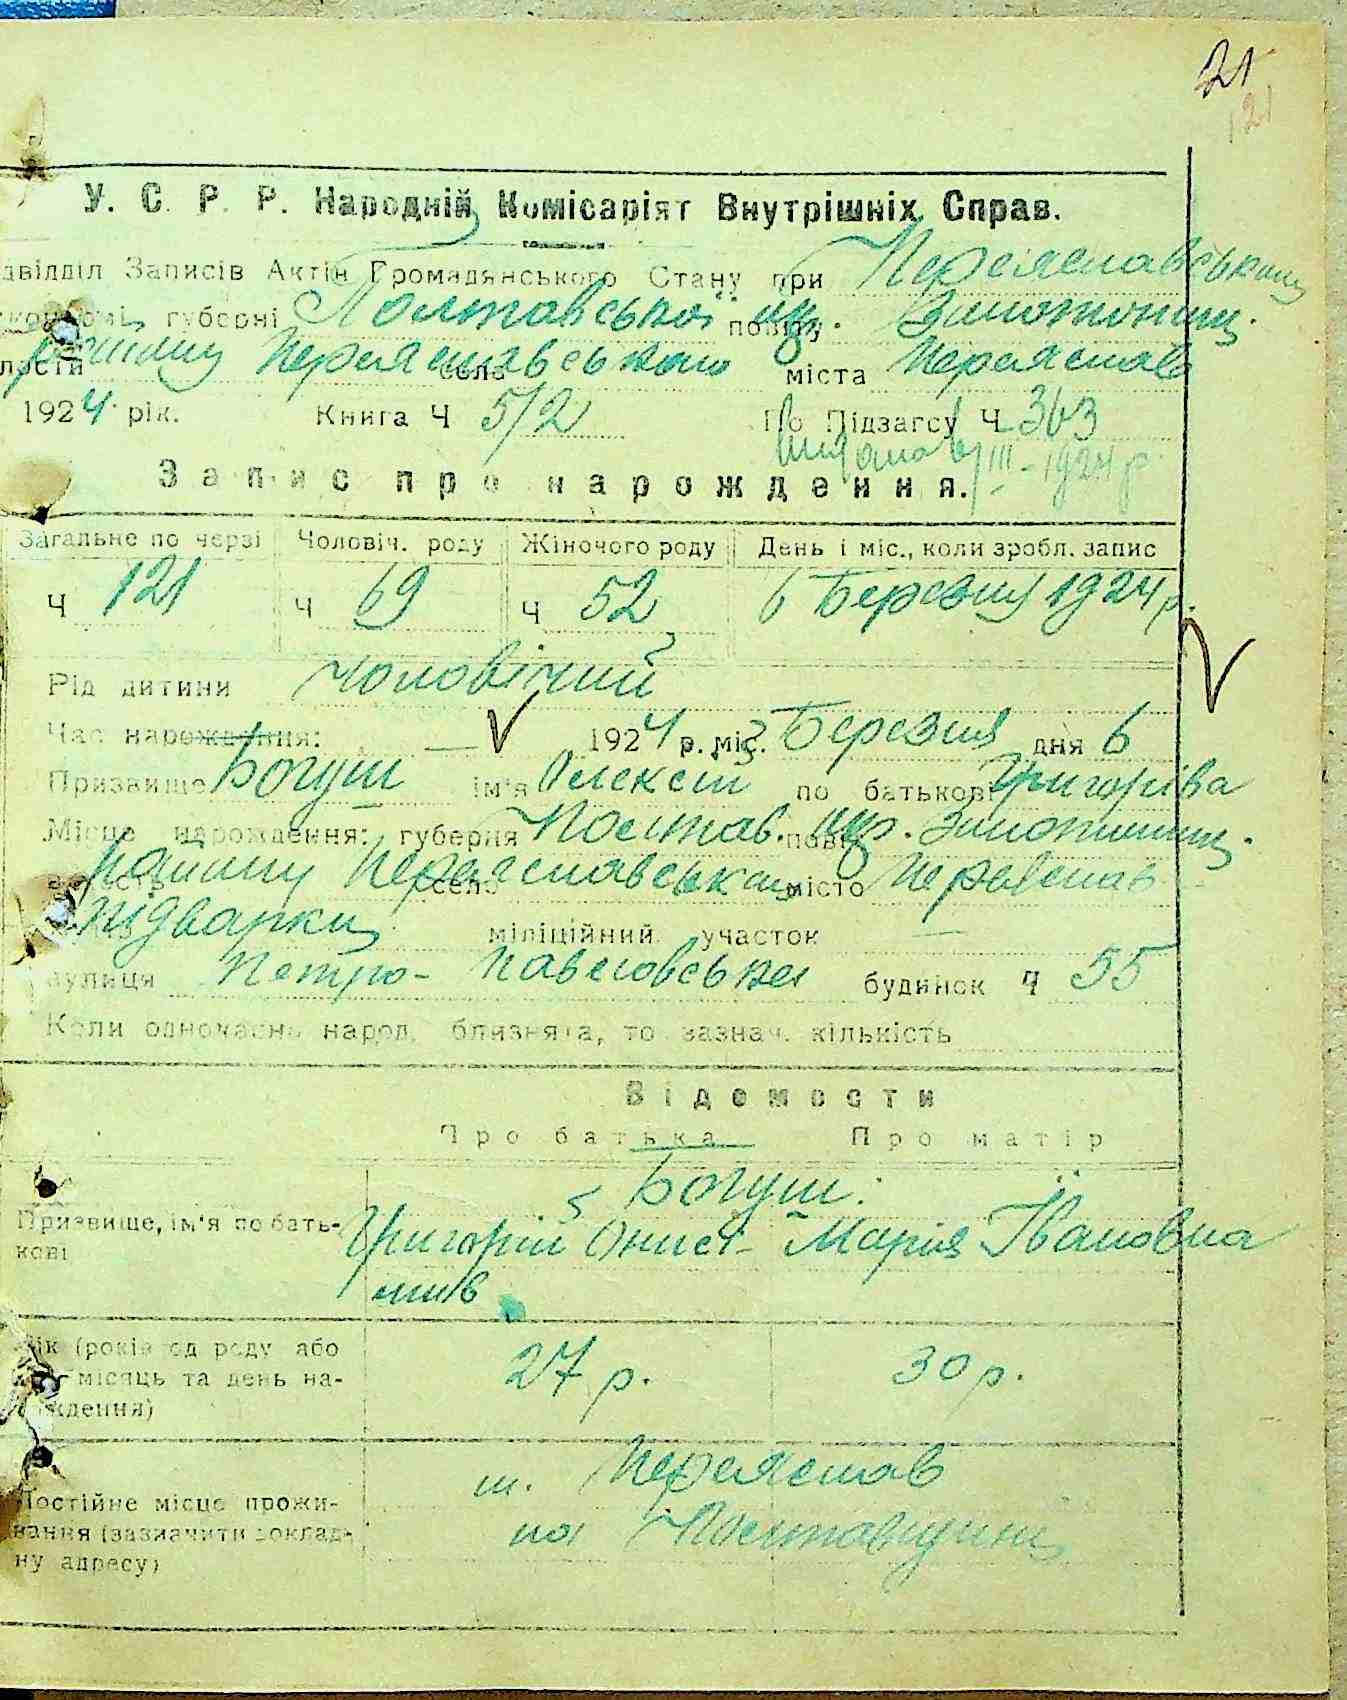 21
121
У. С. Р. Р. Народній Комісаріят Внутрішніх Справ.
двідділ Записів Актів Громадянського Стану при Переяславському
губерні Полтавської окр. повіту Золотоніщ.
лости Переяславського села міста Переяслав
1924 рік. Книга Ч 5/2 По Підзагсу Ч 363
III - 1924 р.
Запис про народження.
Загальне по черзі Чоловіч. роду Жіночого роду День і міс., коли зробл. запис
Ч 121 Ч 69 Ч 52 6 Березня 1924 р.
Рід дитини чоловічий
Час народження: 1924 р. міс. Березня дня 6
Призвище Богуш ім'я Олексій по батькові Григорієва
Місце народження: губерня Полтав. окр. повіт Золотоніщ.
волость Переяславська село місто Переяслав
Підварки міліційний участок —
вулиця Петро-Павловська будинок Ч 55
Коли одночасно народ. близнята, то зазнач. кількість
Відомости
Про батька Про матір
Богуш:
Призвище, ім'я по бать- Григорій Онись- Марія Івановна
кові
Вік (років од роду або
місяць та день на- 27 р. 30 р.
рождення)
м. Переяслав
Постійне місце прожи-
вання (зазначити доклад- на Полтавщині
ну адресу)